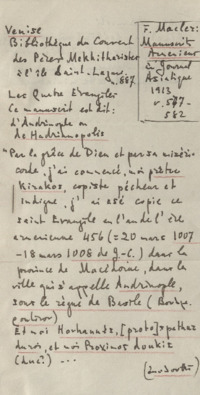 Venise
Bibliothèque du Couvent
des Pères Mekhitharistes
à l'île Saint-Lazare,
n. 887
Les Quatre Évangiles
Ce manuscrit est dit:
d'Andrinople ou
de Hadrianopolis
F. Macler:
Manuscrit
Arménien
in Journal
Asiatique
1913
582
"Par la grâce de Dieu et par sa miséri-
corde, j'ai commencé, moi prêtre
Kirakos, copiste pécheur et
indigne, j'ai osé copier ce
saint Évangile en l'an de l'ère
arménienne 456 (= 20 mars 1007
-18 mars 1008 de J.-C.) dans la
province de Macédoine, dans la
ville qui s'appelle Andrinople,
sous le règne de Basile
Et moi Hovhannès, [proto]spathaire
et moi Proximos
(duc) ...